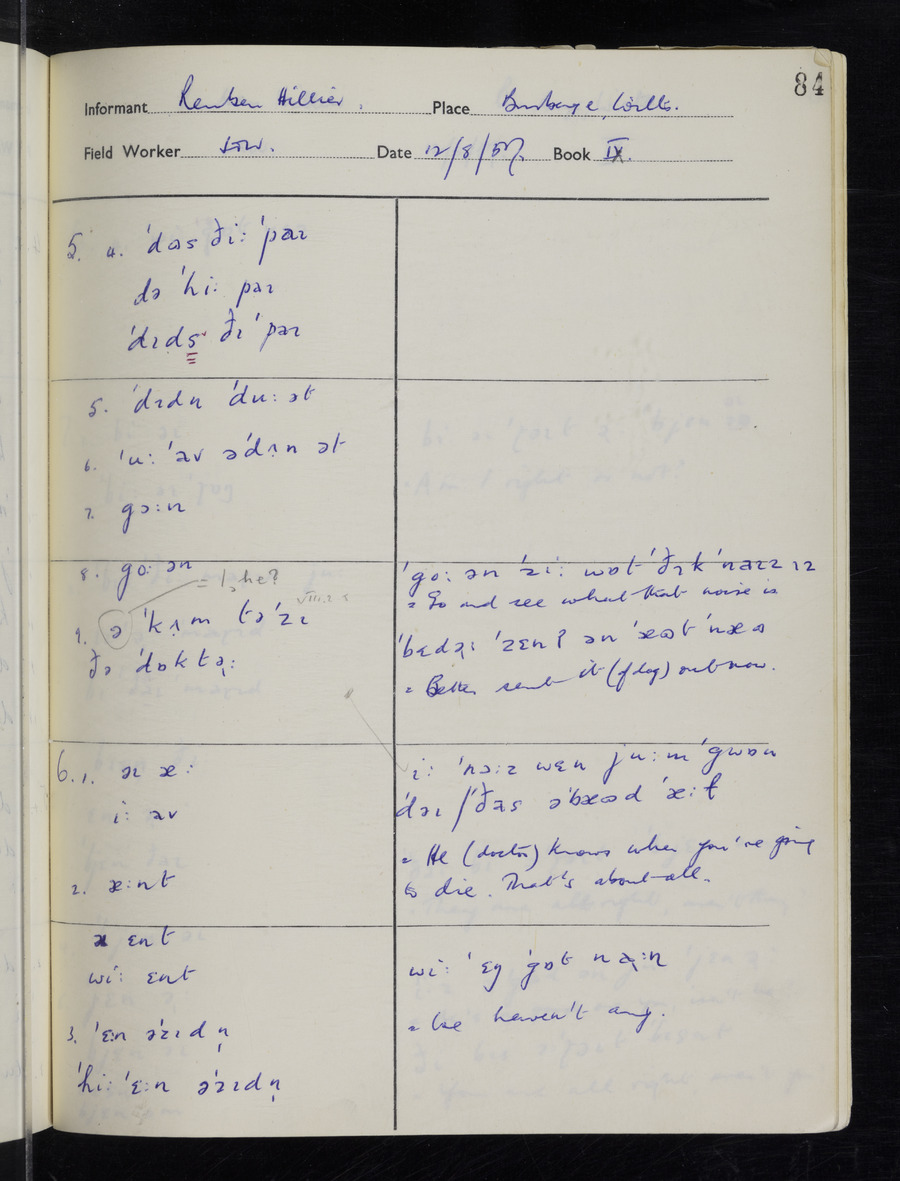 84
Informant Reuben Hillier. Place Burbage, Wilts.
Field Worker Date 12/8/57. Book IX.
5. 4. ˈdəs ði: ˈpəɪ
də ˈhi: pəɪ
ˈdɪds ðɪ ˈpəɪ
5. ˈdɪdn ˈdu: ət
6. ˈu: ˈəv əˈdʌn ət
7. gɔ:n
8. go: ən
= ? he?
VIII.2.5
9. ə ˈkʌm təˈzɪ
ðə ˈdɒktə:
ˈgo: ən ˈzi: wɒt ˈðɪk ˈnəɪz ɪz
= Go and see what that noise is
ˈbɛdə: ˈzɛnʔ ən ˈæʊt ˈnæʊ
= Better send it (dog) out now.
6. 1. əɪ æ:
i: əv
2. æ:nt
i: ˈnɔ:z wɛn ju:m ˈgwɒn
ˈdəɪ / ˈðæs əˈbæʊd ˈæ:ɫ
= He (doctor) knows when you're going
to die. That's about all.
ɛnt
wi: ɛnt
3. ˈɛ:n əˈzɪdn̩
ˈhi: ˈɛ:n əˈzɪdn̩
wi: ˈɛŋ ˈgɒt nə:n
= We haven't any.